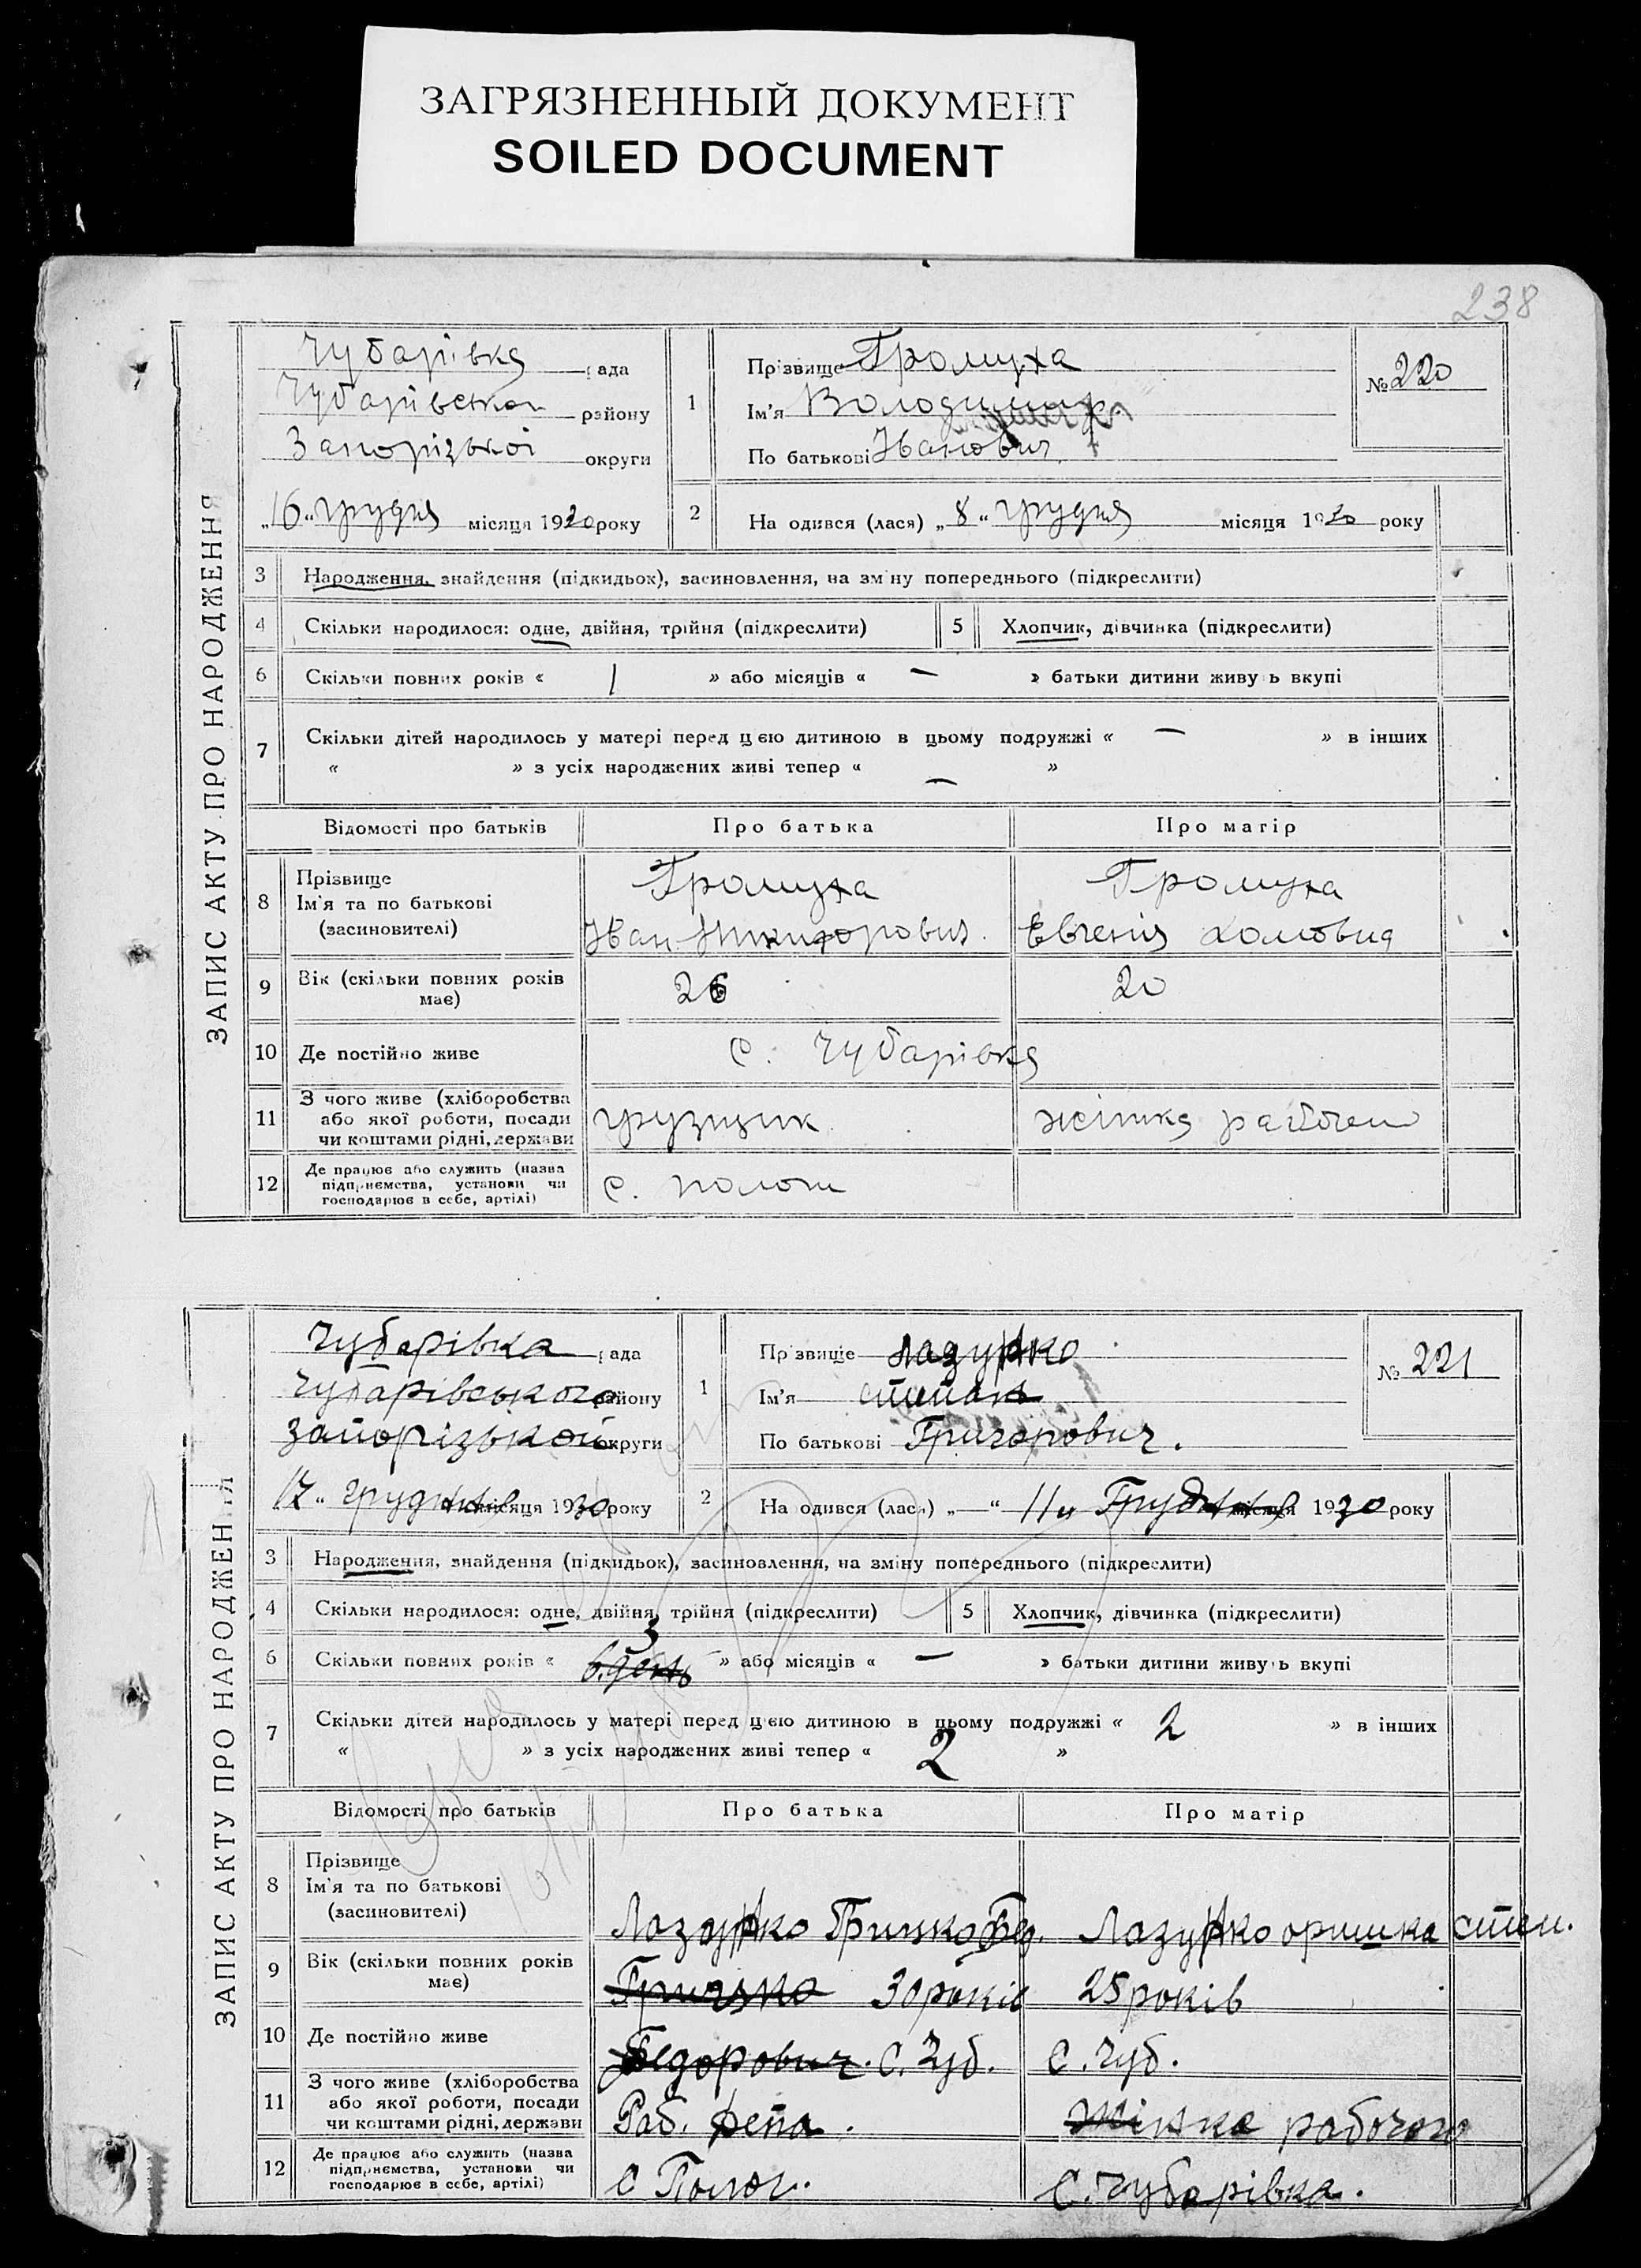 ЗАГРЯЗНЕННЫЙ ДОКУМЕНТ
SOILED DOCUMENT
238
ЗАПИС АКТУ ПРО НАРОДЖЕННЯ
Чубарівка рада
Чубарівської району
Запорізької округи
„16“ грудня місяця 1930 року
1
Прізвище Громуха
Ім'я Володимир
По батькові Іванович
№ 220
2
На одився (лася) „8“ грудня місяця 1930 року
3 Народження, знайдення (підкидьок), засиновлення, на зміну попереднього (підкреслити)
4 Скільки народилося: одне, двійня, трійня (підкреслити) 5 Хлопчик, дівчинка (підкреслити)
6 Скільки повних років « 1 » або місяців « — » батьки дитини живуть вкупі
7 Скільки дітей народилось у матері перед цією дитиною в цьому подружжі « — » в інших
« » з усіх народжених живі тепер « — »
Відомості про батьків Про батька Про матір
8 Прізвище
Ім'я та по батькові
(засиновителі)
Громуха Громуха
Іван Никифорович. Евгенія
9 Вік (скільки повних років
має) 26 20
10 Де постійно живе с. Чубарівка
11 З чого живе (хліборобства
або якої роботи, посади
чи коштами рідні, держави
грузщик жінка рабочего
12 Де працює або служить (назва
підприємства, установи чи
господарює в себе, артілі)
с. Пологи
ЗАПИС АКТУ ПРО НАРОДЖЕННЯ
Чубарівка рада
Чубарівського району
Запорізької округи
17 „ Грудня місяця 1930 року
1
Прізвище Лазурко
Ім'я Степан
По батькові Григорович.
№ 221
2
На одився (лася) „—“ 11 „ Грудня місяця 1930 року
3 Народження, знайдення (підкидьок), засиновлення, на зміну попереднього (підкреслити)
4 Скільки народилося: одне, двійня, трійня (підкреслити) 5 Хлопчик, дівчинка (підкреслити)
3
6 Скільки повних років « » або місяців « — » батьки дитини живуть вкупі
7 Скільки дітей народилось у матері перед цією дитиною в цьому подружжі « 2 » в інших
« » з усіх народжених живі тепер « 2 »
Відомості про батьків Про батька Про матір
8 Прізвище
Ім'я та по батькові
(засиновителі)
Лазурко Грицко Фед. Лазурко Оришка Степ.
9 Вік (скільки повних років
має) Грицько 30 років 25 років
10 Де постійно живе Федорович. С. Чуб. С. Чуб.
11 З чого живе (хліборобства
або якої роботи, посади
чи коштами рідні, держави
Раб. Депа. Жінка рабочого
12 Де працює або служить (назва
підприємства, установи чи
господарює в себе, артілі)
С Полог. С. Чубарівка.